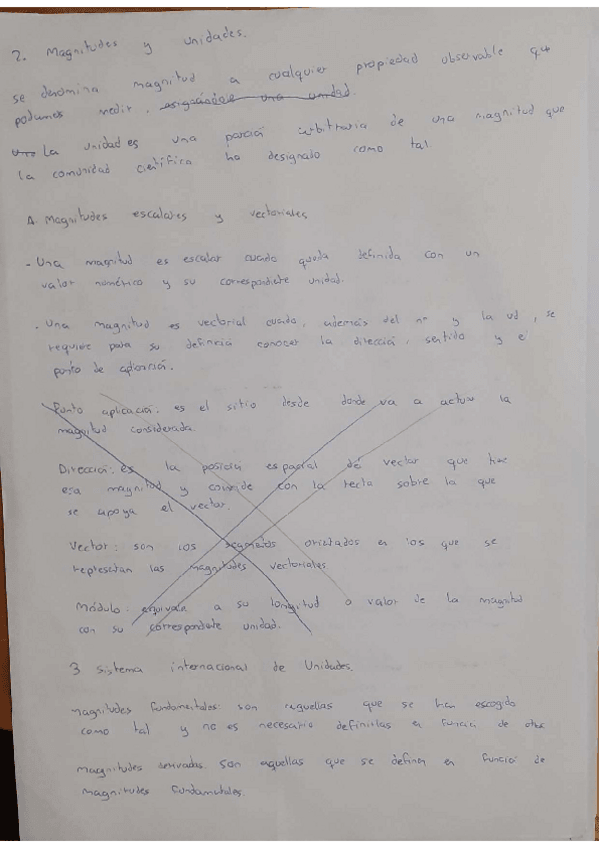 2. Magnitudes y unidades.
se denomina magnitud a cualquier propiedad observable que
podamos medir, asignándole una unidad.
Una La unidad es una porción arbitraria de una magnitud que
la comunidad científica ha designado como tal.
A. Magnitudes escalares y vectoriales
- Una magnitud es escalar cuando queda definida con un
valor numérico y su correspondiente unidad.
- Una magnitud es vectorial cuando, además del nº y la ud, se
requiere para su definición conocer la dirección, sentido y el
punto de aplicación.
Punto aplicación: es el sitio desde donde va a actuar la
magnitud considerada.
Dirección: es la posición espacial del vector que hace
esa magnitud y coincide con la recta sobre la que
se apoya el vector.
Vector: son los segmentos orientados en los que se
representan las magnitudes vectoriales
Módulo: equivale a su longitud o valor de la magnitud
con su correspondiente unidad.
3 Sistema internacional de Unidades.
Magnitudes fundamentales: son aquellas que se han escogido
como tal y no es necesario definirlas en función de otra
Magnitudes derivadas. Son aquellas que se definen en función de
magnitudes fundamentales.